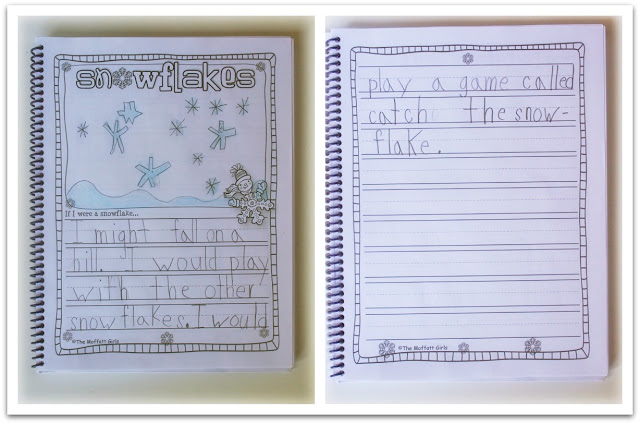 snowflakes
If I were a snowflake...
I might fall on a
hill. I would play
with the other
snowflakes. I would
©The Moffatt Girls
play a game called
catch the snow-
flake.
©The Moffatt Girls